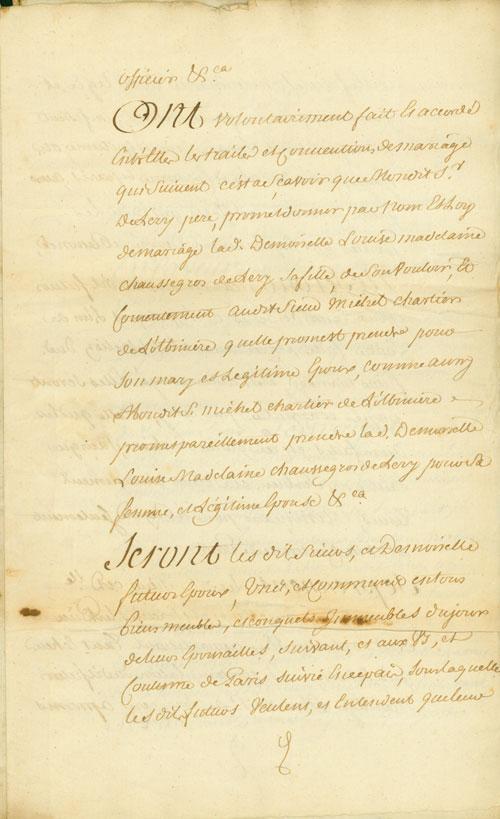 officiers &c.a
Ont volontairement fait et accordé
Entr'Elles les traités et Convention, de mariage
qui Suivent c'est a Sçavoir que Mondit S.r
De Lery pere, promet donner par Nom Et Loy
de mariage lad. Demoiselle Louise madelaine
chaussegros de Lery Sa fille, de Son Vouloir, Et
Consentement audit Sieur Michel chartier
de Lotbiniere quelle promest prendre pour
Son mary et Legitime Epoux, comme aussy
Mondit S. michel chartier de Lotbiniere
promet pareillement prendre lad. Demoiselle
Louise Madelaine chaussegros de Lery pour Sa
femme, et Légitime Epouse &ca
Seront les dit Sieurs, et Demoiselle
futurs Epoux, Unes, et Communes en tous
biens meubles, et conquets Immeubles du jours
de leurs Epousailles, Suivant, et aux et
Coutume de Paris Suivie En ce païs, Sous laquelle
les dit. futurs Veulent, et Entendent que leur